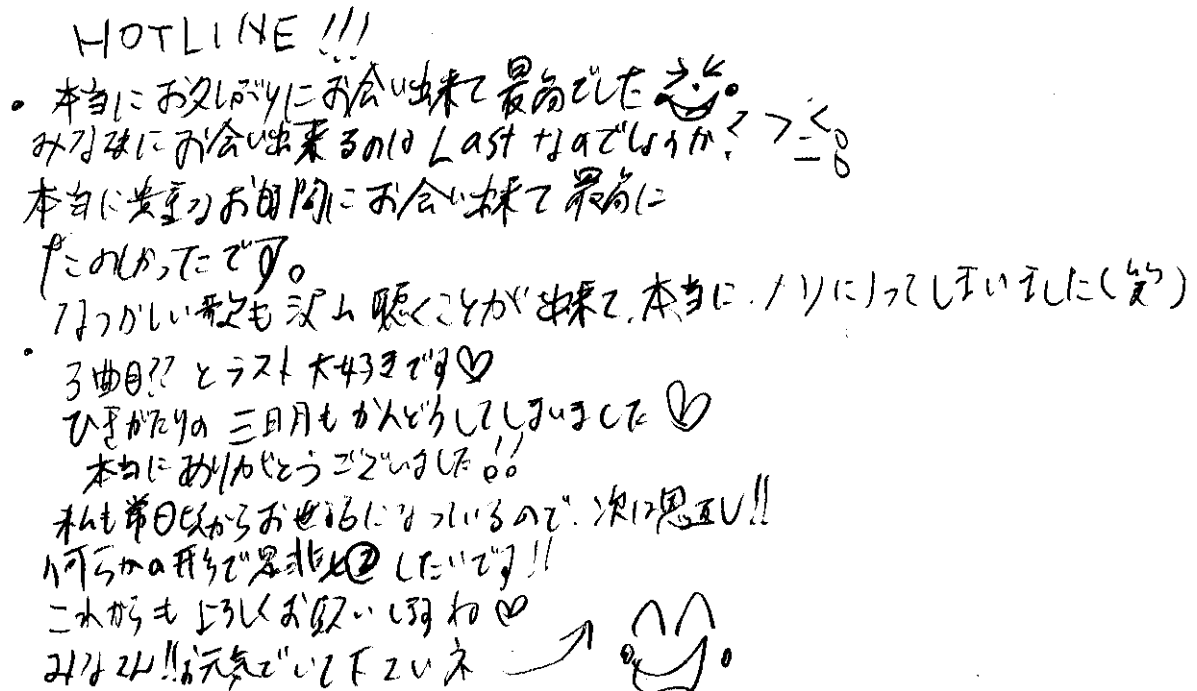 HOTLINE!!!
・本当にお久しぶりにお会い出来て最高でした
みな様にお会い出来るのはLastなのでしょうか?
本当に貴重なお時間にお会い出来て最高に
たのしかったです。
なつかしい歌も沢山聴くことが出来て、本当にノリにノってしまいました(笑)
・3曲目??とラスト大好きです♡
ひきがたりの三日月もかんどうしてしまいました♡
本当にありがとうございました!!
私も常日頃からお世話になっているので、次は恩返し!!
何らかの形で したいです!!
これからも よろしくお願いしますね♡
みなさん!!お元気でいて下さいネ